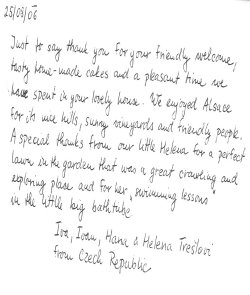 25/05/06
Just to say thank you for your friendly welcome,
tasty home-made cakes and a pleasant time we
have spent in your lovely house. We enjoyed Alsace
for its nice hills, sunny vineyards and friendly people.
A special thanks from our little Helena for a perfect
lawn in the garden that was a great crawling and
exploring place and for her "swimming lessons"
in the little big bathtube
Iva, Ivan, Hana & Helena Trešlovi
from Czech Republic